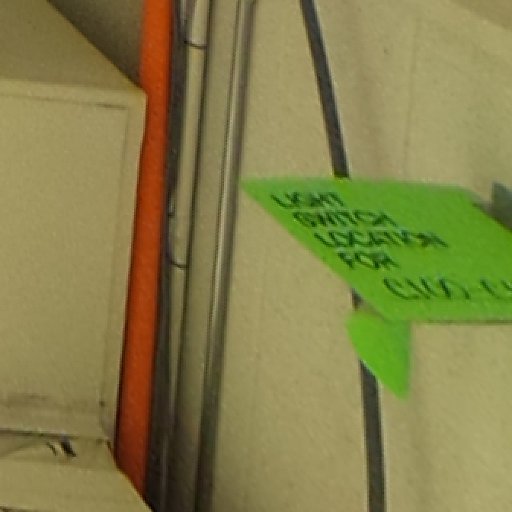 LIGHT
SWITCH
LOCATION
FOR